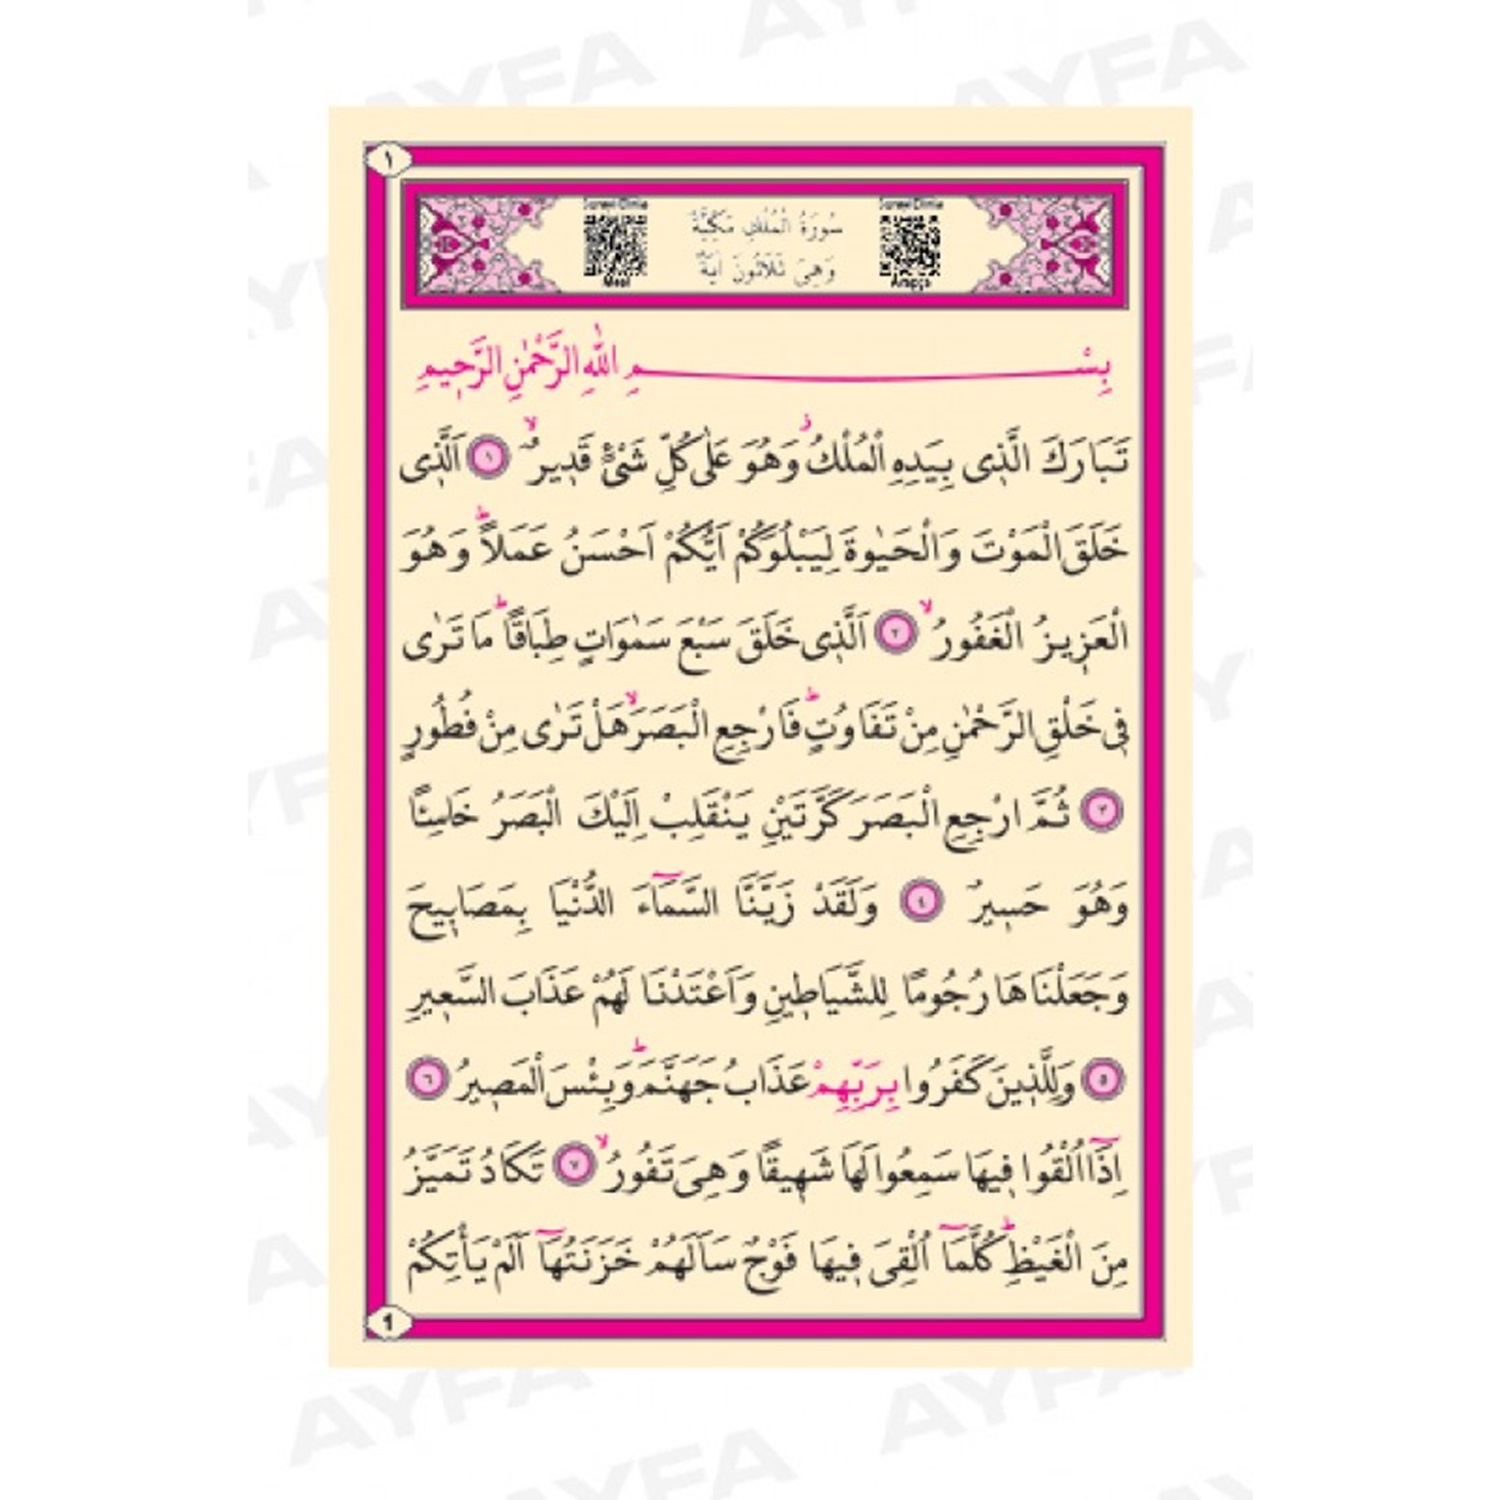 AYFA AYFA
١
Sureyi Dinle سُورَةُ الْمُلْكِ مَكِّيَّةٌ Sureyi Dinle
Meal وَهِىَ ثَلَاثُونَ اٰيَةً Arapça
بِسْمِ اللّٰهِ الرَّحْمٰنِ الرَّحٖيمِ
تَبَارَكَ الَّذٖى بِيَدِهِ الْمُلْكُؗ وَهُوَ عَلٰى كُلِّ شَىْءٍ قَدٖيرٌۙ ﴿١﴾ اَلَّذٖى
خَلَقَ الْمَوْتَ وَالْحَيٰوةَ لِيَبْلُوَكُمْ اَيُّكُمْ اَحْسَنُ عَمَلاًؕ وَهُوَ
الْعَزٖيزُ الْغَفُورُۙ ﴿٢﴾ اَلَّذٖى خَلَقَ سَبْعَ سَمٰوَاتٍ طِبَاقًاؕ مَا تَرٰى
فٖى خَلْقِ الرَّحْمٰنِ مِنْ تَفَاوُتٍؕ فَارْجِعِ الْبَصَرَۙ هَلْ تَرٰى مِنْ فُطُورٍ
﴿٣﴾ ثُمَّ ارْجِعِ الْبَصَرَ كَرَّتَيْنِ يَنْقَلِبْ اِلَيْكَ الْبَصَرُ خَاسِئًا
وَهُوَ حَسٖيرٌ ﴿٤﴾ وَلَقَدْ زَيَّنَّا السَّمَٓاءَ الدُّنْيَا بِمَصَابٖيحَ
وَجَعَلْنَاهَا رُجُومًا لِلشَّيَاطٖينِ وَاَعْتَدْنَا لَهُمْ عَذَابَ السَّعٖيرِ
﴿٥﴾ وَلِلَّذٖينَ كَفَرُوا بِرَبِّهِمْ عَذَابُ جَهَنَّمَؕ وَبِئْسَ الْمَصٖيرُ ﴿٦﴾
اِذَٓا اُلْقُوا فٖيهَا سَمِعُوا لَهَا شَهٖيقًا وَهِىَ تَفُورُۙ ﴿٧﴾ تَكَادُ تَمَيَّزُ
مِنَ الْغَيْظِؕ كُلَّمَٓا اُلْقِىَ فٖيهَا فَوْجٌ سَاَلَهُمْ خَزَنَتُهَٓا اَلَمْ يَأْتِكُمْ
1
AYFA AYFA
AYFA